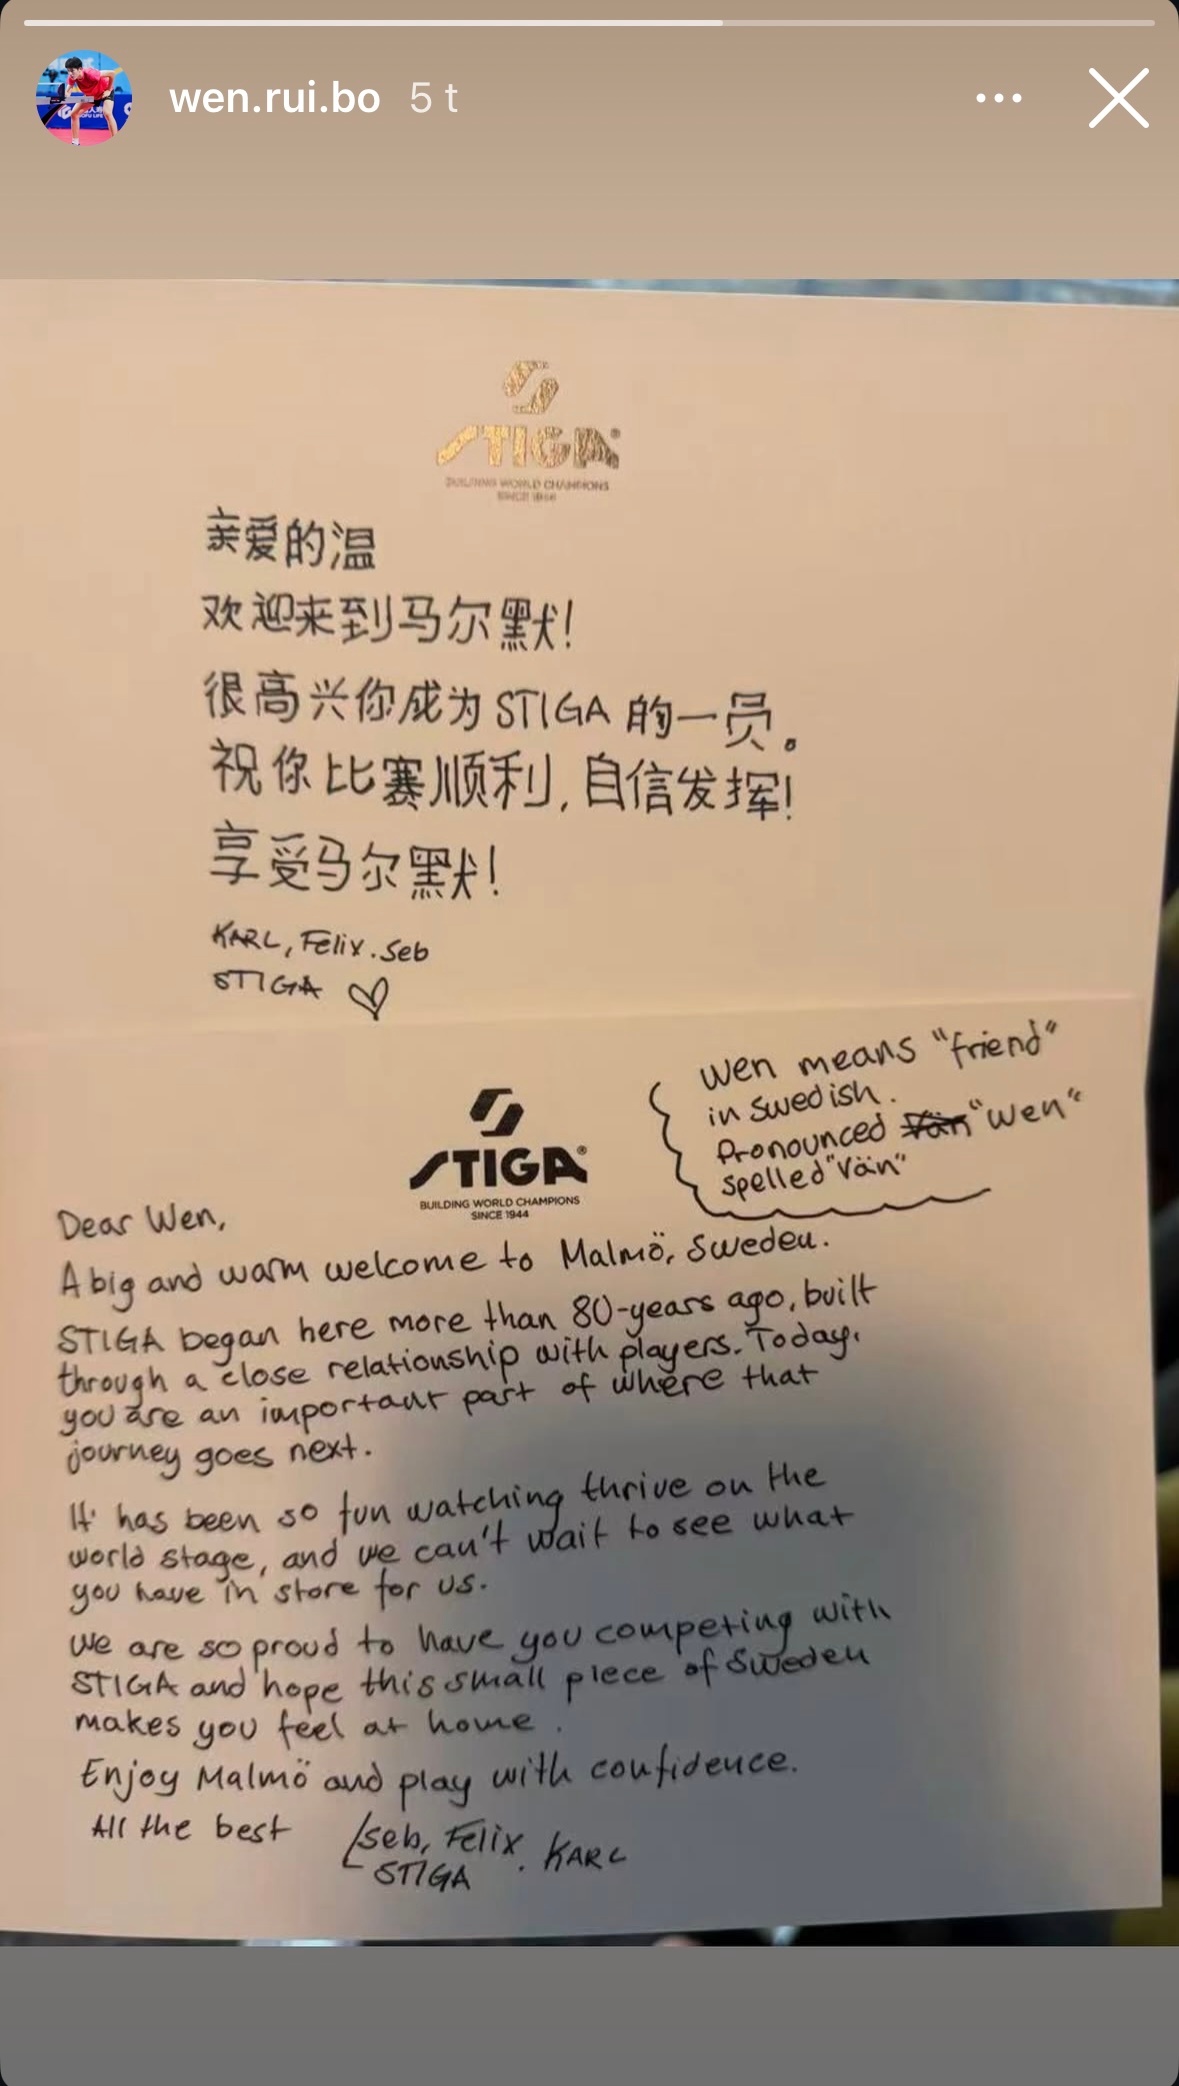 wen.rui.bo 5 t
STIGA®
BUILDING WORLD CHAMPIONS
SINCE
亲爱的温
欢迎来到马尔默!
很高兴你成为STIGA的一员。
祝你比赛顺利,自信发挥!
享受马尔默!
KARL, Felix. Seb
STIGA
wen means "friend"
in Swedish.
Pronounced Vän "wen"
spelled "Vän"
STIGA®
BUILDING WORLD CHAMPIONS
SINCE 1944
Dear Wen,
A big and warm welcome to Malmö, Sweden.
STIGA began here more than 80-years ago, built
through a close relationship with players. Today,
you are an important part of where that
journey goes next.
It has been so fun watching thrive on the
world stage, and we can't wait to see what
you have in store for us.
We are so proud to have you competing with
STIGA and hope this small piece of Sweden
makes you feel at home.
Enjoy Malmö and play with confidence.
All the best
Seb, Felix. KARL
STIGA